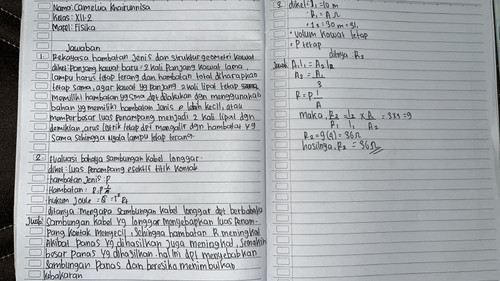 Nama: Camelia Khairunnisa
Kelas: XII-2
Mapel: Fisika
Jawaban
1. Rekayasa hambatan Jenis dan struktur geometri kawat
dikei: Panjang kawat baru: 2 kali Panjang kawat lama,
lampu harus tetap terang dan hambatan total diharapkan
tetap sama, agar kawat yg Panjang 2 kali lipat tetap
memiliki hambatan yg sama dpt dilakukan dengan menggunakan
bahan yg memiliki hambatan Jenis ρ lebih kecil, atau
memperbesar luas Penampang menjadi 2 kali lipat dgn
demikian, arus listrik tetap dpt mengalir dgn hambatan yg
sama sehingga nyala lampu tetap terang
2. Evaluasi bahaya sambungan kabel longgar
dikei: luas Penampang efektif titik kontak
hambatan Jenis: ρ
Hambatan:
hukum Joule =
ditanya mengapa sambungan kabel longgar dpt berbahaya
Jwb: Sambungan kabel yg longgar menyebabkan luas Penam-
Pang kontak mengecil, sehingga hambatan R meningkat
Akibat Panas yg dihasilkan Juga meningkat, semakin
besar Panas yg dihasilkan. hal ini dpt menyebabkan
Sambungan Panas dan beresiko menimbulkan
kebakaran
3. dikei = l₁ = 10 m
R₁ = 4 Ω
l₂ = 30 m = 3l₁
• Volum kawat tetap
• ρ tetap
ditnya R₂
Jawab: A₁l₁ = A₂l₂
A₂ = A₁
3
R = ρ l
A
Maka, R₂ = l₂ × A₁ = 3×3 = 9
R₁ l₁ A₂
R₂ = 9(4) = 36 Ω
hasilnya, R₂ = 36 Ω